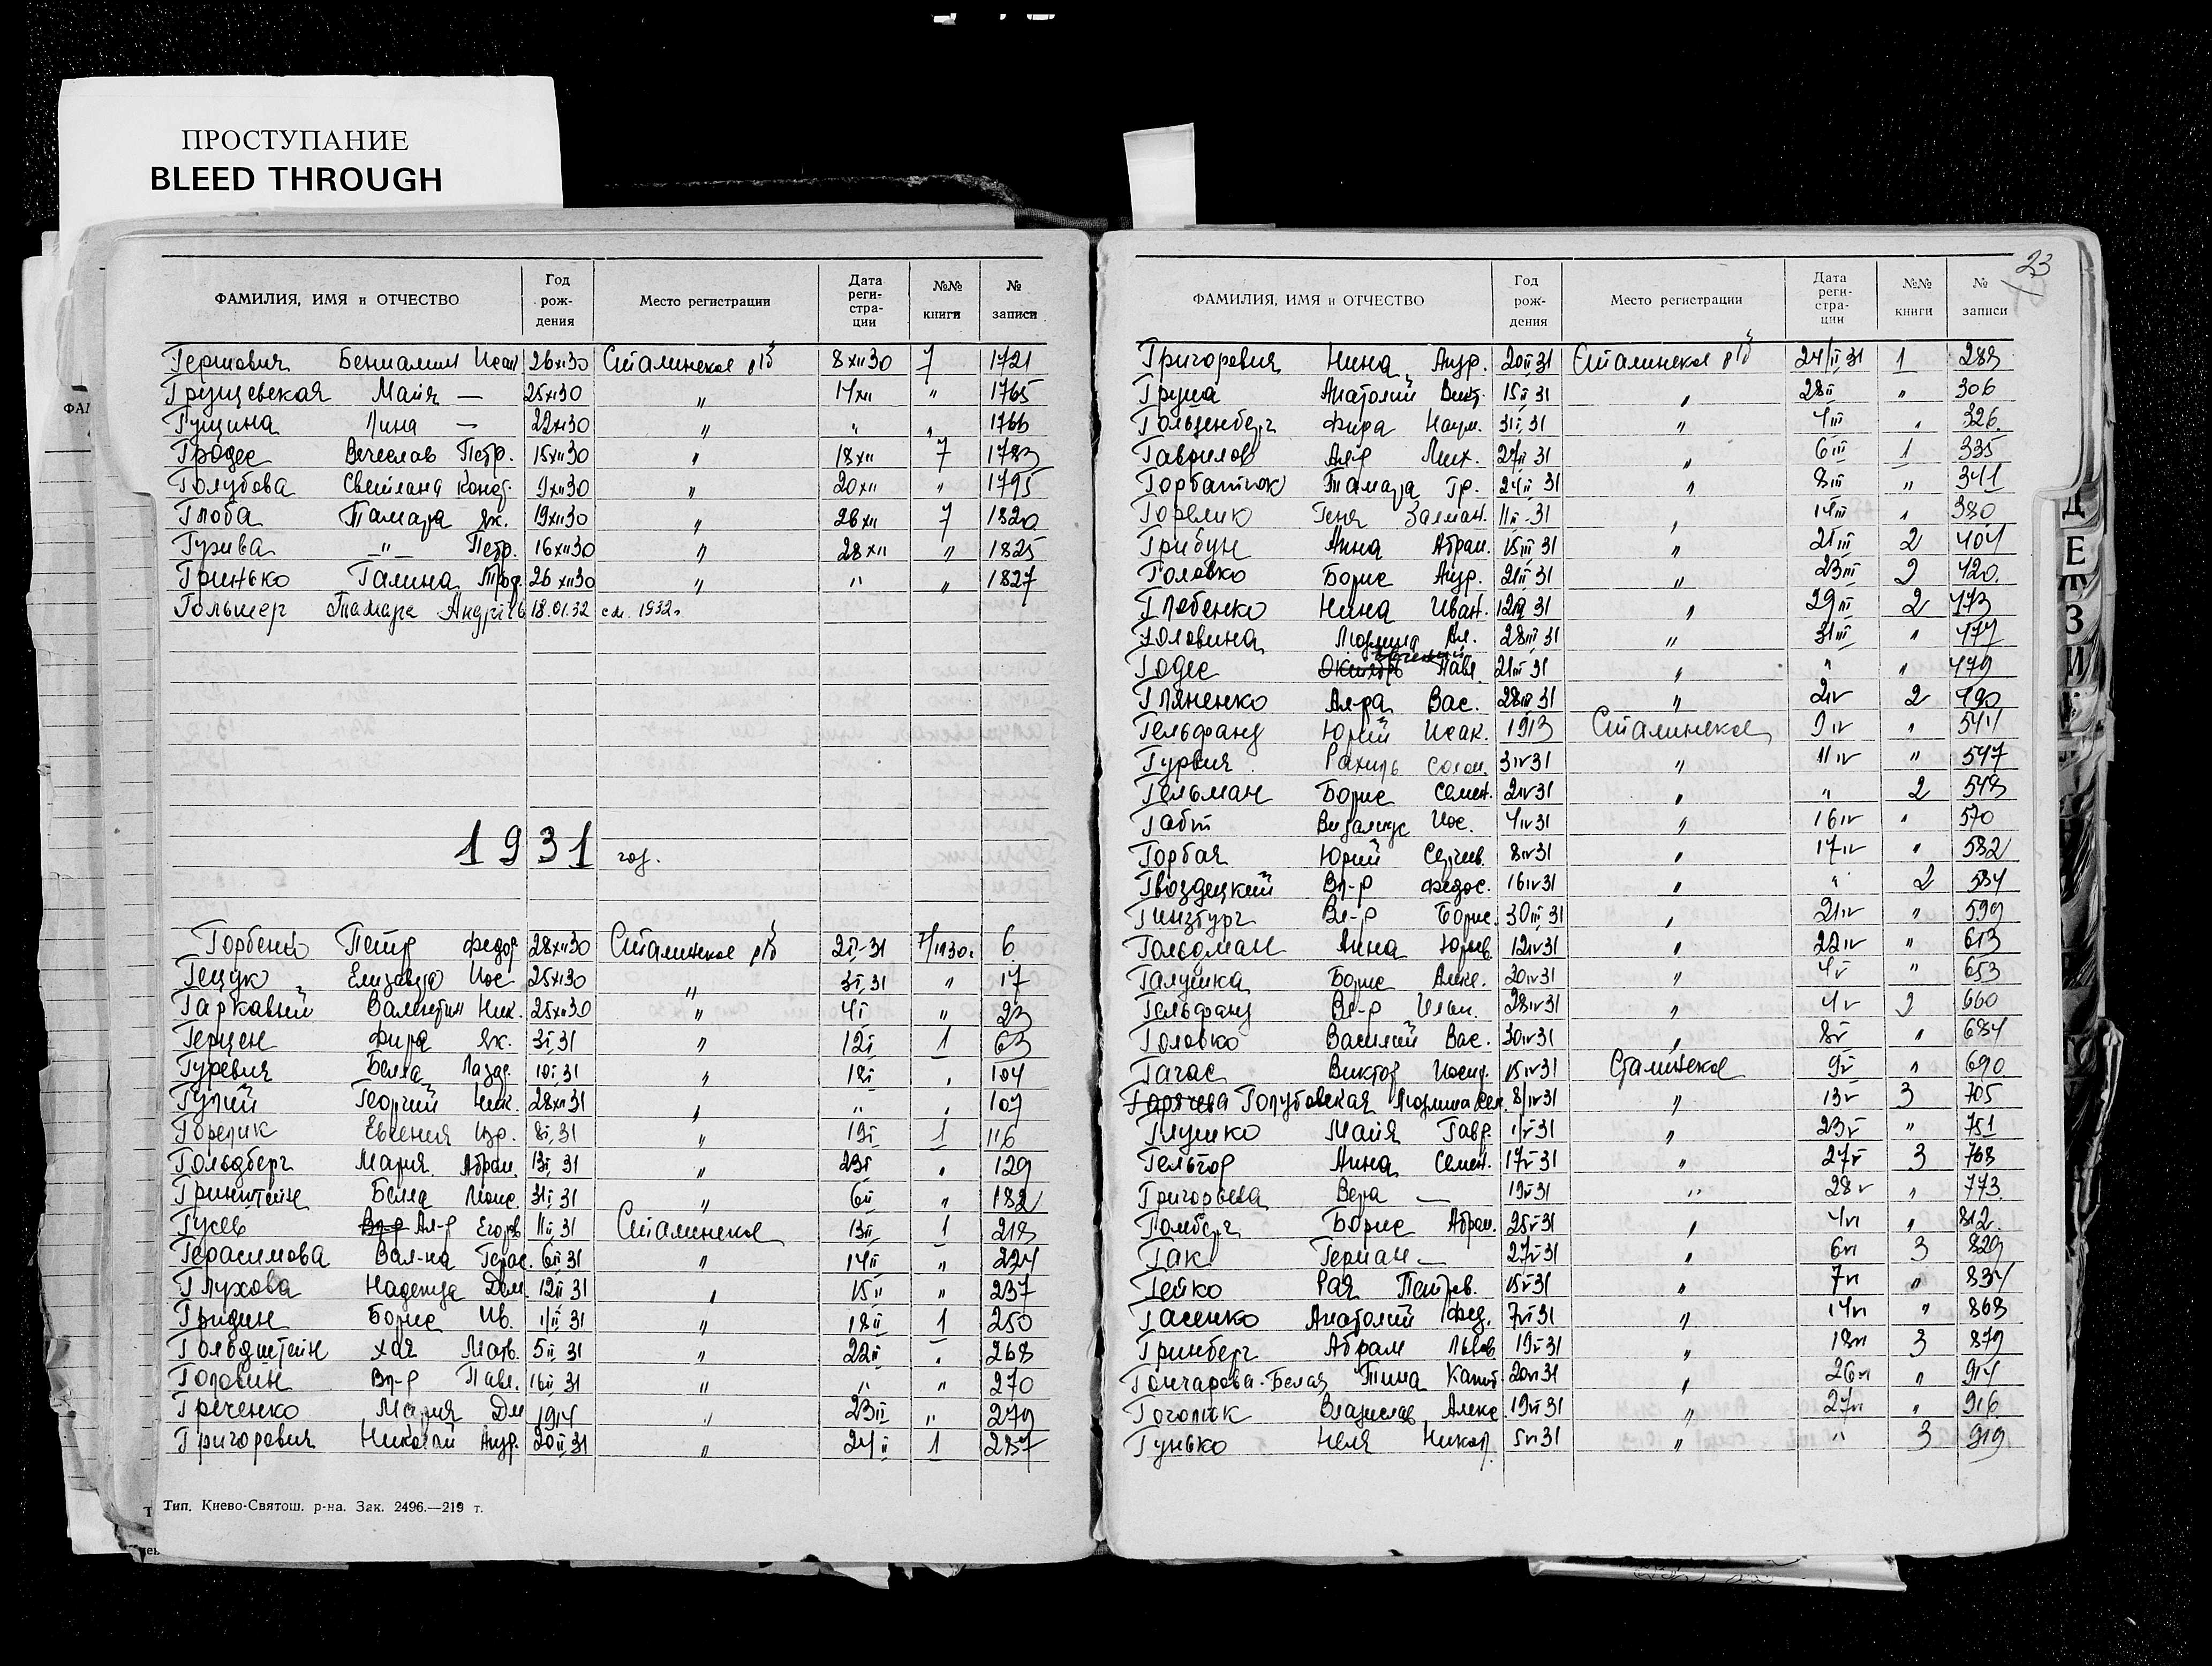 ПРОСТУПАНИЕ
BLEED THROUGH
ФАМИЛИЯ, ИМЯ и ОТЧЕСТВО Год рож-дения Место регистрации Дата реги-стра-ции №№ книги № записи
Гершович Бениамин Исаак 26XII30 Сталинское р/б 8XII30 7 1721
Грущевская Майя — 25XI30 " 14XII " 1765
Гущина Лина — 22XI30 " " " 1766
Гродес Вячеслав Петр. 15XII30 " 18XII 7 1783
Голубова Светлана Конст. 9XII30 " 20XII " 1795
Глоба Тамара Як. 19XII30 " 26XII 7 1820
Гурива —"— Петр. 16XII30 " 28XII " 1825
Гринько Галина Трод. 26XII30 " " " 1827
Гольмер Тамара Андріїв 18.01.32 см. 1932г
1931 год.
Горбенко Петр Федор 28XII30 Сталинское р/б 2I-31 7/1930г 6
Гецук Елизавета Иос 25XI30 " 3I,31 " 17
Гаркавый Валентин Ник. 25XII30 " 4I " 23
Герцен Фира Як. 3I,31 " 12I 1 63
Гуревич Белла Лазар. 10I,31 " 18I " 104
Гупий Георгий Ник. 28XII31 " " " 107
Горелик Евгения Изр. 8I,31 " 19I 1 116
Гольдберг Мария Абрам. 13I,31 " 23I " 129
Гринштейн Белла Моис. 31I,31 " 6II " 182
Гусев Вл-р Ал-р Егоров 11II,31 Сталинское 13II 1 218
Герасимова Вал-на Герас. 6II31 " 14II " 224
Глухова Надежда Дем. 12II31 " 15II " 237
Гридин Борис Ив. 1/II31 " 18II 1 250
Гольдштейн Хая Матв. 5II,31 " 22II " 268
Головин Вл-р Павл. 16II,31 " " " 270
Греченко Мария Дм 1914 " 23II " 279
Григорович Николай Андр. 20II31 " 24II 1 287
Тип. Киево-Святош. р-на. Зак. 2496.—219 т.
23
ФАМИЛИЯ, ИМЯ и ОТЧЕСТВО Год рож-дения Место регистрации Дата реги-стра-ции №№ книги № записи
Григорович Нина Андр. 20II31 Сталинское р/б 24/II,31 1 288
Груша Анатолий Викт. 15II31 " 28II " 306
Гольденберг Фира Наум. 31I,31 " 4III " 326
Гаврилов Ал-р Мих. 27II31 " 6III 1 335
Горбатюк Тамара Гр. 24II31 " 8III " 341
Горелик Геня Залман. 11II-31 " 14III " 380
Грибун Анна Абрам. 15III31 " 21III 2 404
Головко Борис Андр. 21II31 " 23III 2 420
Глебенко Нина Иван. 12III31 " 29III 2 473
Головина Людмила Ал. 28III31 " 31III " 477
Годес Октябрь Павл. 21III31 " " " 479
Гляненко Ал-ра Вас. 28III31 " 2IV 2 490
Гельфанд Юрий Исак. 1913 Сталинское 9IV " 544
Гурвич Рахиль Солом. 3IV31 " 11IV " 547
Гельман Борис Семен. 2IV31 " " 2 548
Габт Виталиус Иос. 4IV31 " 16IV " 570
Горбач Юрий Сергеев. 8IV31 " 17IV " 582
Гвоздецкий Вл-р Федос. 16IV31 " " 2 584
Гинзбург Вл-р Борис. 30III,31 " 21IV " 599
Гольдман Анна Юрьев. 12IV31 " 22IV " 613
Галушка Борис Алекс. 20IV31 " 4V " 653
Гельфанд Вл-р Ильи. 28IV31 " 4V 2 660
Головко Василий Вас. 30IV31 " 8V " 684
Гагас Виктор Иосиф. 15IV31 Сталинское 9V " 690
Горячева Голубовская Людмила Сем. 8/IV31 " 13V 3 705
Глушко Майя Гавр. 1/V31 " 23V " 751
Гельгор Анна Семен. 17V31 " 27V 3 768
Григорьева Вера — 19V31 " 28V " 773
Гомберг Борис Абрам. 25V31 " 4VI " 812
Гак Герман — 27V31 " 6VI 3 829
Гейко Рая Петров. 15V31 " 7VI " 834
Гасенко Анатолий Фед. 7VI31 " 14VI " 868
Гринберг Абрам Львов 19V31 " 18VI 3 879
Гончарова-Белая Тина Капит 20VI31 " 26VI " 914
Гоголик Владислав Алекс. 19VI31 " 27VI " 916
Гунько Неля Никол. 5VI31 " " 3 919